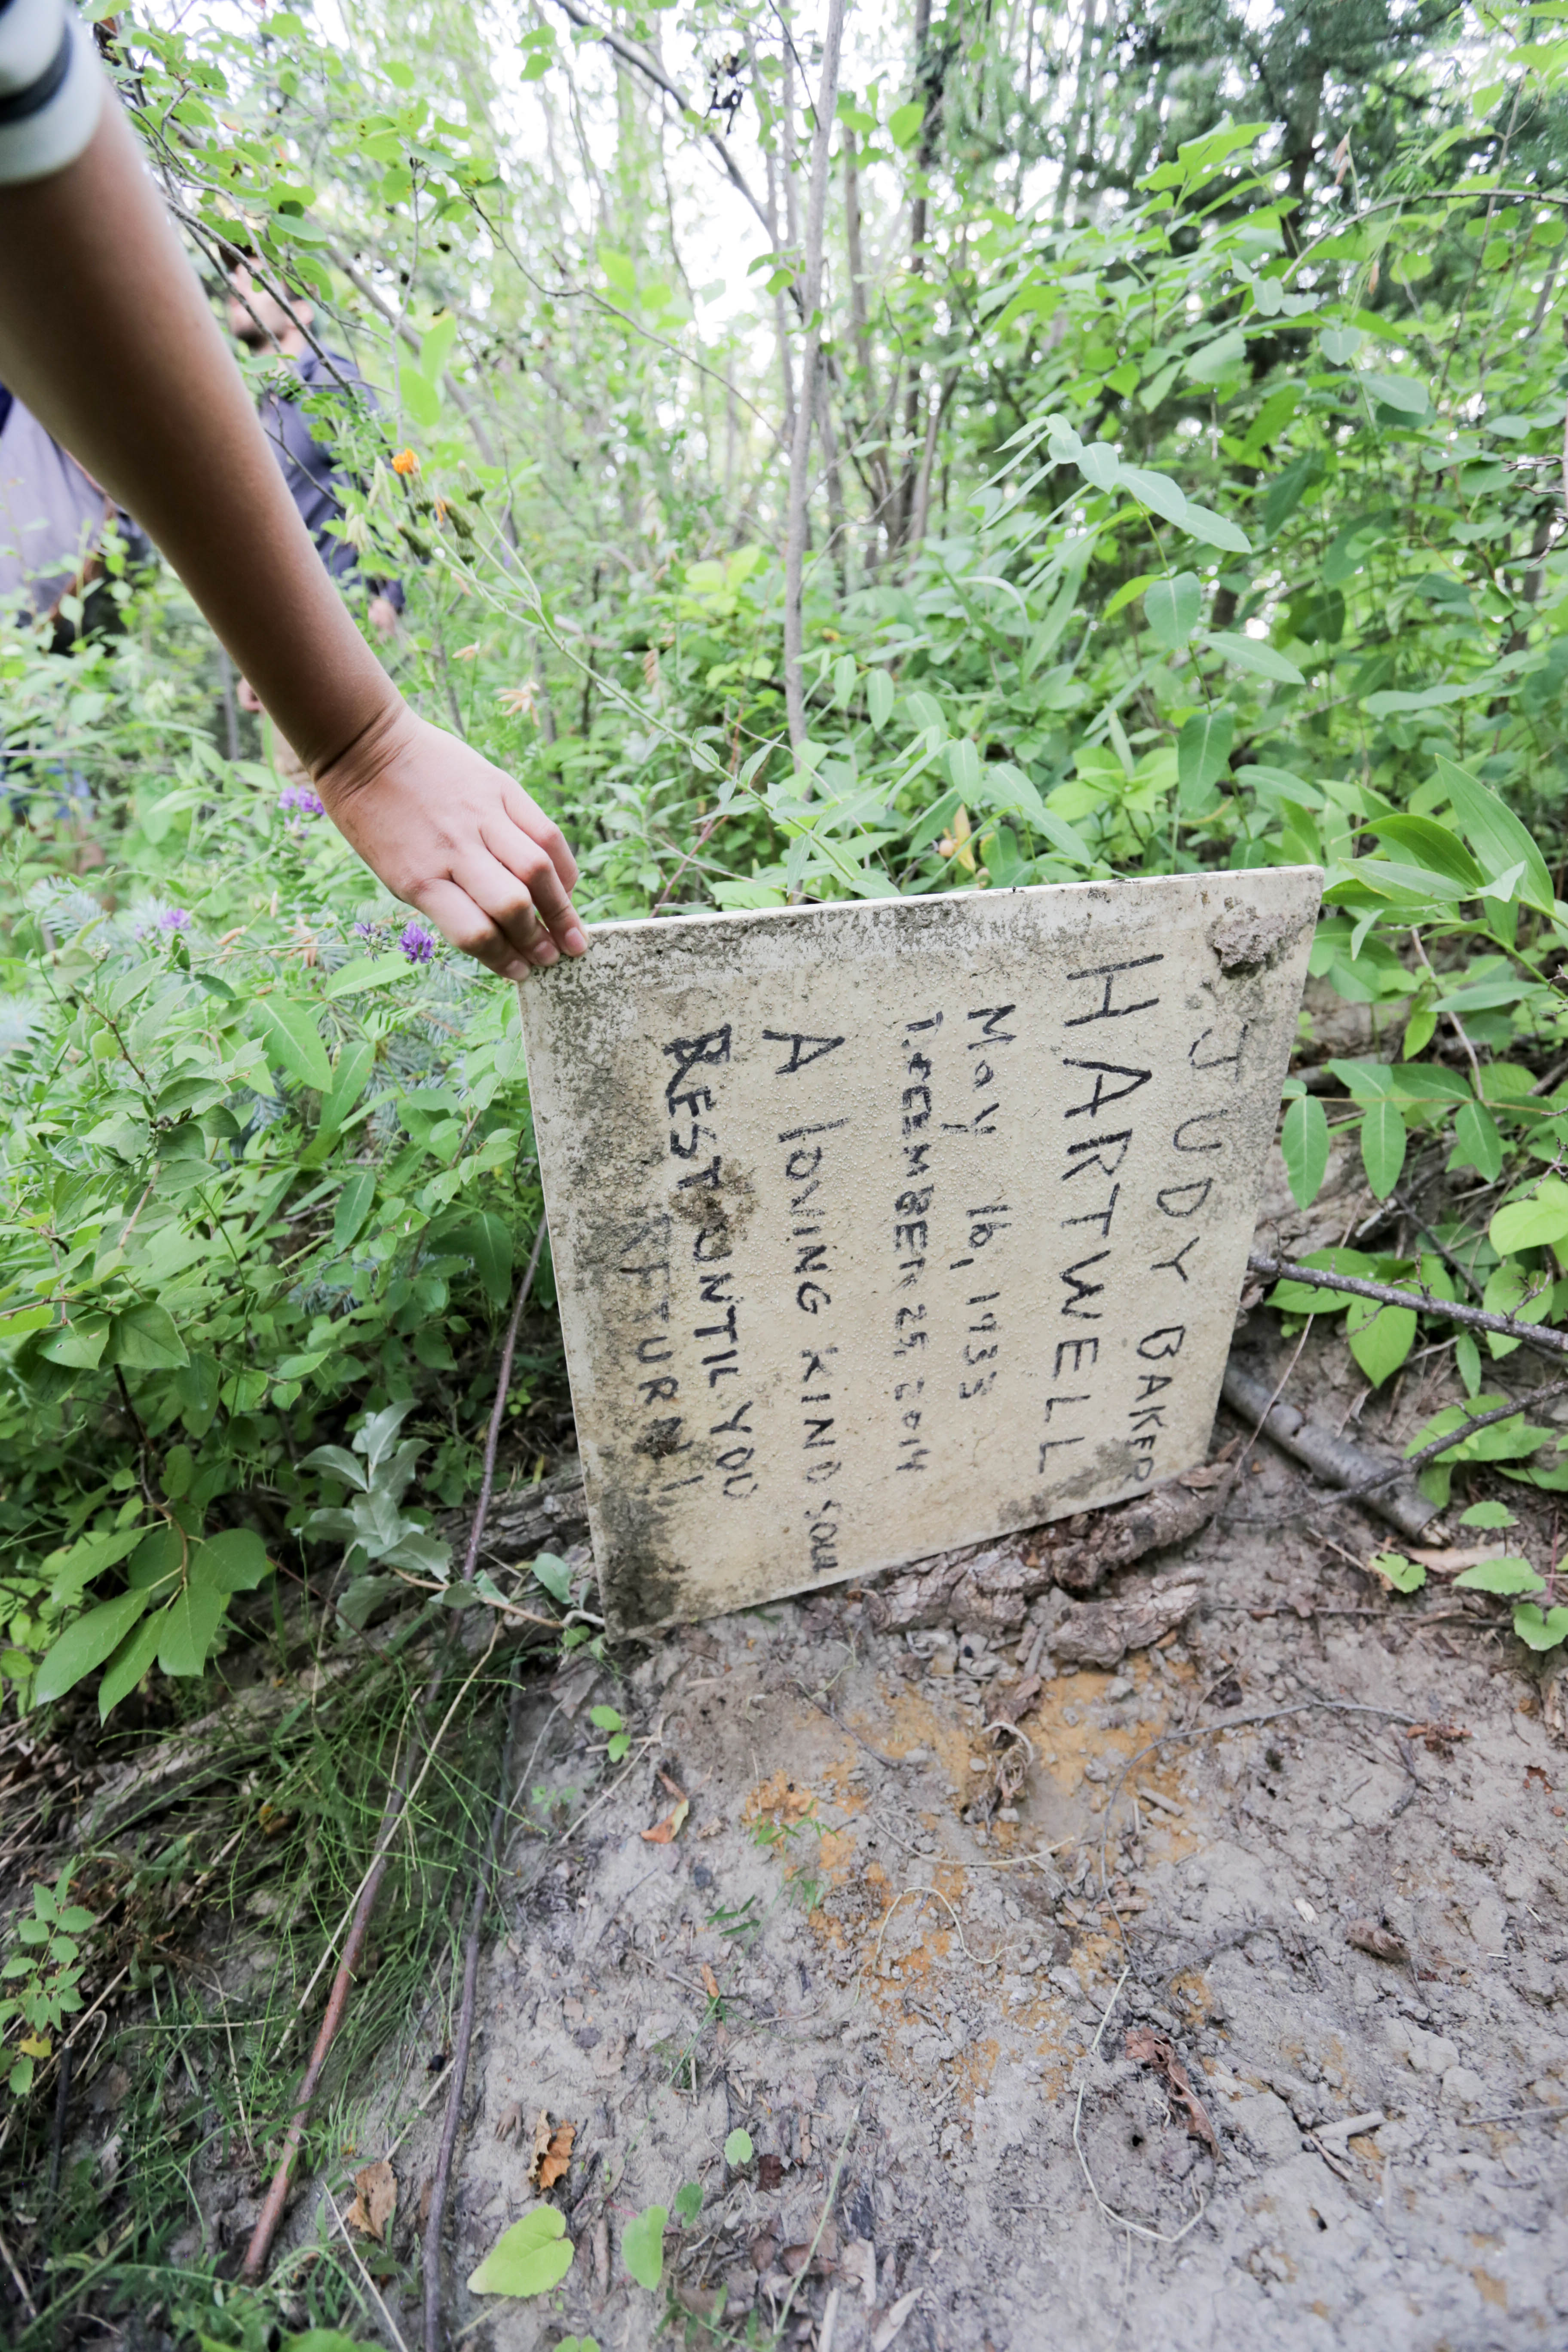 JUDY BAKER
HARTWELL
May 16, 1933
DECEMBER 25, 2014
A loVING KIND SOUl
REST UNTIL YOU
RETURN!